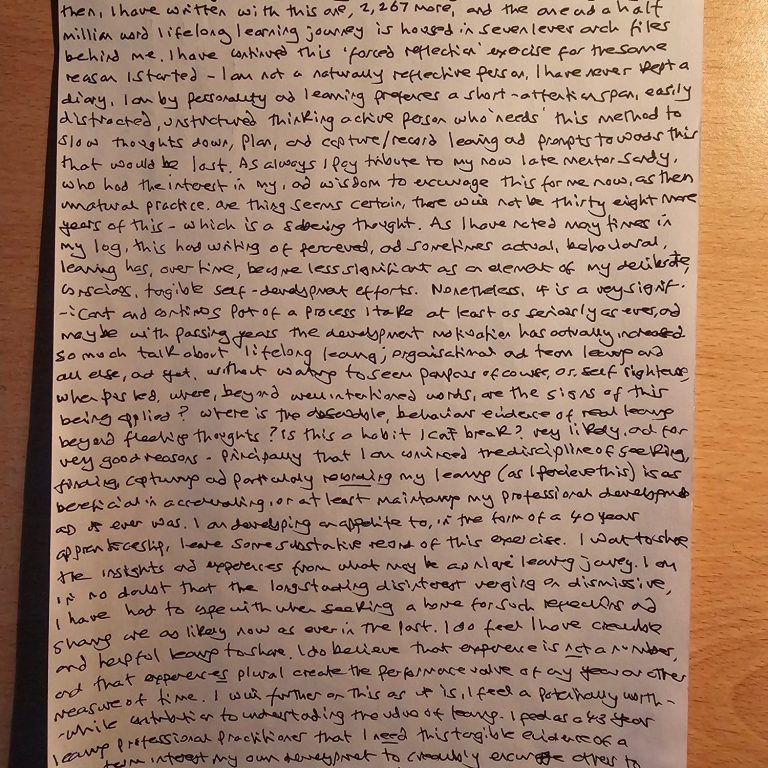 then, I have written with this one, 2,267 more, and the one and a half
million word lifelong learning journey is housed in seven lever arch files
behind me. I have continued this 'forced reflection' exercise for the same
reason I started - I am not a naturally reflective person, I have never kept a
diary, I am by personality and learning preference a short-attention span, easily
distracted, unstructured thinking active person who 'needs' this method to
slow thoughts down, plan, and capture/record learning and prompts towards this
that would be lost. As always I pay tribute to my now late mentor Sandy,
who had the interest in my, and wisdom to encourage this for me now, as then
unnatural practice. One thing seems certain, there will not be thirty eight more
years of this - which is a sobering thought. As I have noted many times in
my log, this hand writing of perceived, and sometimes actual, behavioural,
learning has, over time, become less significant as an element of my deliberate,
conscious, tangible self-development efforts. Nonetheless, it is a very signif-
-icant and continuous part of a process I take at least as seriously as ever, and
maybe with passing years the development motivation has actually increased
so much talk about 'lifelong learning; organisational and team learning and
all else, and yet, without wanting to seem pompous of course, or self righteous,
when pushed, where, beyond well intentioned words, are the signs of this
being applied? Where is the observable, behaviour evidence of real learning
beyond fleeting thoughts? Is this a habit I can't break? Very likely, and for
very good reasons - principally that I am convinced the discipline of seeking,
finding, capturing and particularly recording my learning (as I perceive this) is as
beneficial in accelerating, or at least maintaining my professional development
as it ever was. I am developing an appetite to, in the form of a 40 year
apprenticeship, leave some substantive record of this exercise. I want to share
the insights and experiences from what may be a unique learning journey. I am
in no doubt that the longstanding disinterest verging on dismissive,
I have had to cope with when seeking a home for such reflections and
sharing are as likely now as ever in the past. I do feel I have credible
and helpful learning to share. I do believe that experience is not a number,
and that experiences plural create the performance value of any year or other
measure of time. I will further on this as it is, I feel a potentially worth-
-while contribution to understanding the value of learning. I feel as a 43 year
learning professional practitioner that I need this tangible evidence of a
term interest my own development to credibly encourage others to